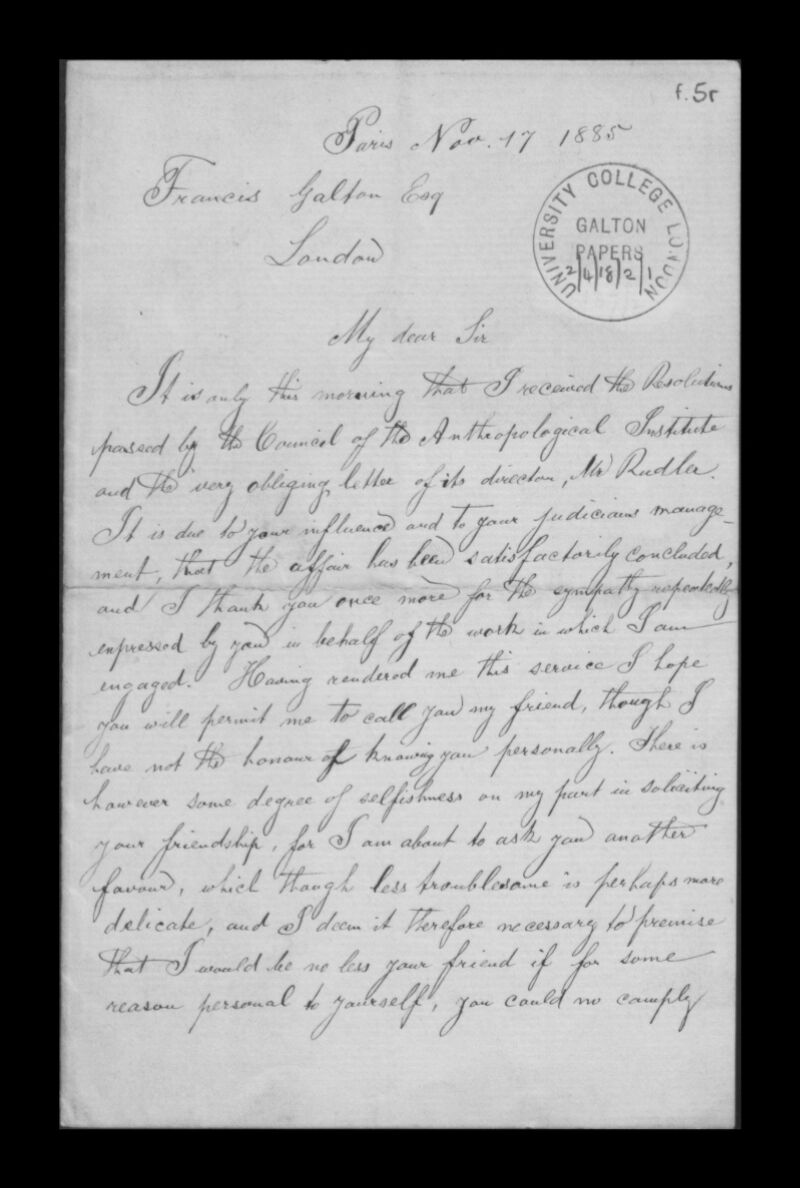 f. 5r
Paris Nov. 17 1885
Francis Galton Esq
London
UNIVERSITY COLLEGE LONDON
GALTON
PAPERS
2/4/18/2/1
My dear Sir
It is only this morning that I received the Resolutions
passed by the Council of the Anthropological Institute
and the very obliging letter of its director, Mr Rudler.
It is due to your influence and to your judicious manage-
ment, that the affair has been satisfactorily concluded,
and I thank you once more for the sympathy repeatedly
expressed by you in behalf of the work in which I am
engaged. Having rendered me this service I hope
you will permit me to call you my friend, though I
have not the honour of knowing you personally. There is
however some degree of selfishness on my part in soliciting
your friendship, for I am about to ask you another
favour, which though less troublesome is perhaps more
delicate, and I deem it therefore necessary to premise
that I would be no less your friend if for some
reason personal to yourself, you could no comply